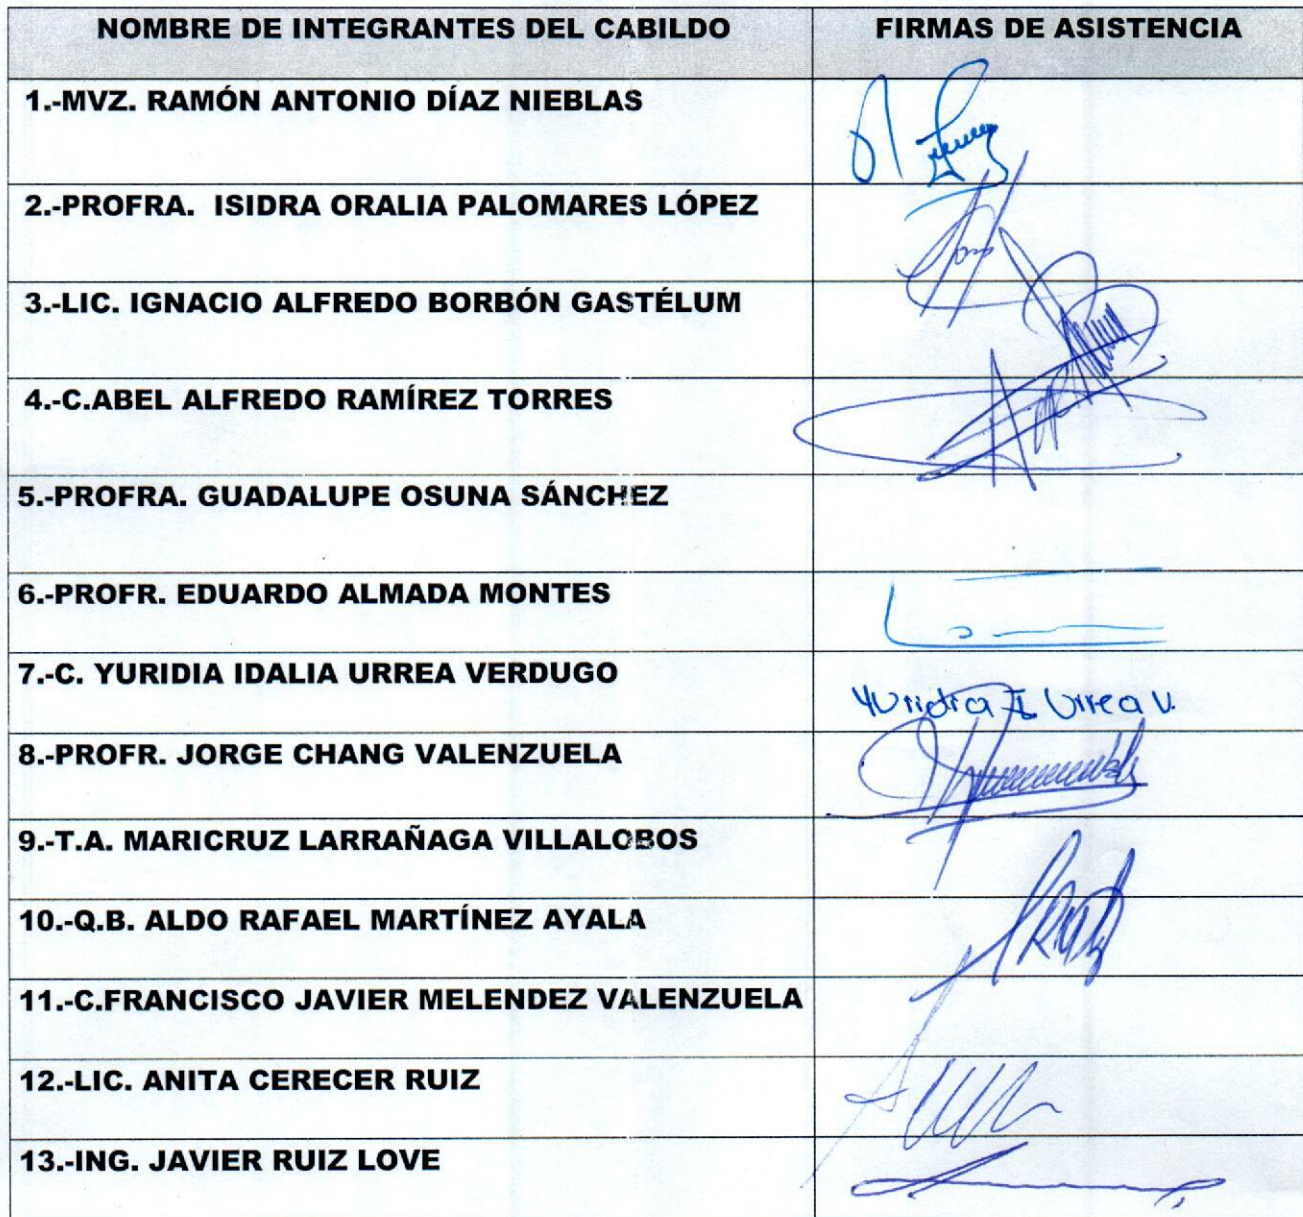 NOMBRE DE INTEGRANTES DEL CABILDO FIRMAS DE ASISTENCIA
1.-MVZ. RAMÓN ANTONIO DÍAZ NIEBLAS
2.-PROFRA. ISIDRA ORALIA PALOMARES LÓPEZ
3.-LIC. IGNACIO ALFREDO BORBÓN GASTÉLUM
4.-C.ABEL ALFREDO RAMÍREZ TORRES
5.-PROFRA. GUADALUPE OSUNA SÁNCHEZ
6.-PROFR. EDUARDO ALMADA MONTES
7.-C. YURIDIA IDALIA URREA VERDUGO Yuridia I Urrea V.
8.-PROFR. JORGE CHANG VALENZUELA
9.-T.A. MARICRUZ LARRAÑAGA VILLALOBOS
10.-Q.B. ALDO RAFAEL MARTÍNEZ AYALA
11.-C.FRANCISCO JAVIER MELENDEZ VALENZUELA
12.-LIC. ANITA CERECER RUIZ
13.-ING. JAVIER RUIZ LOVE